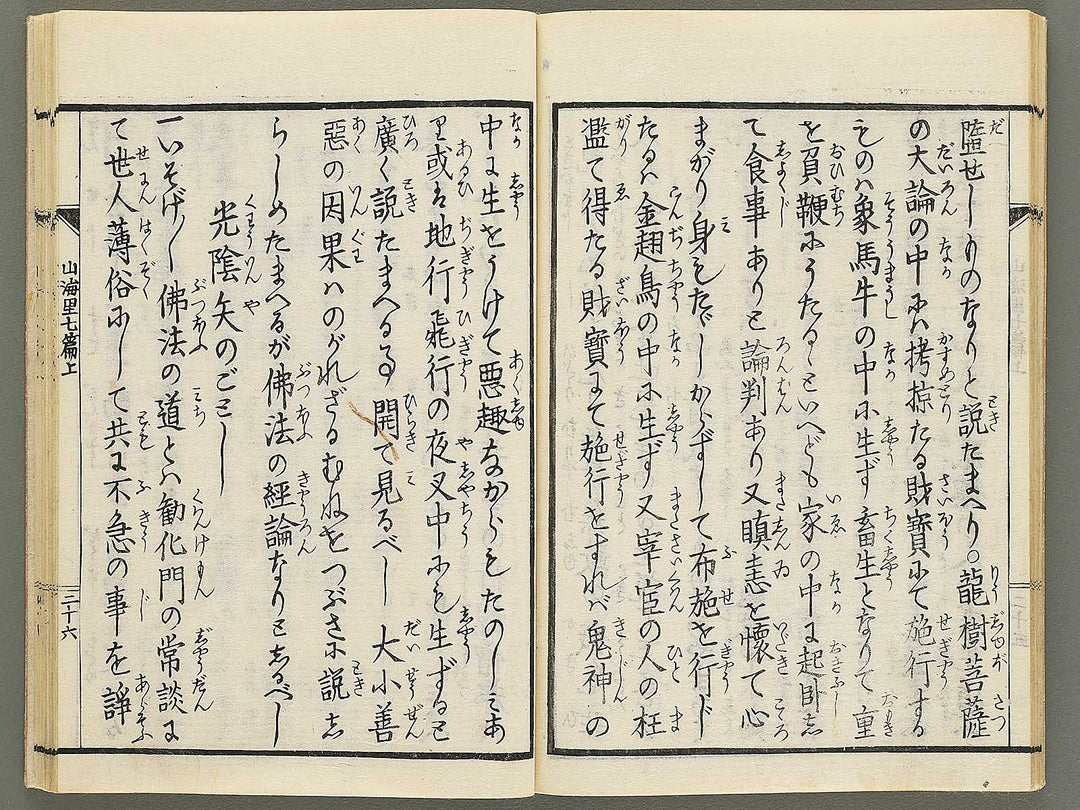 堕せしものなりと説たまへり○龍樹菩薩
の大論の中には拷掠たる財寶にて施行する
ものは象馬牛の中に生ず畜生となりて重
を負鞭にうたるゝといへども家の中に起卧し
て食事ありと論判あり又瞋恚を懐て心
まがり身もたゞしからずして布施を行ず
たるは金翅鳥の中に生ず又宰官の人の枉
濫て得たる財寶にて施行をすれば鬼神の
中に生をうけて悪趣ながらもたのしみあ
り或は地行飛行の夜叉中にも生ずると
廣く説たまへる開て見るべし大小善
惡の因果はのがれざるむねをつぶさに説し
らしめたまへるが佛法の經論なりとしるべし
光陰矢のごとし
一いそげ〱佛法の道とは勧化門の常談に
て世人薄俗にして共に不急の事を諍
山海里七篇上
三十六